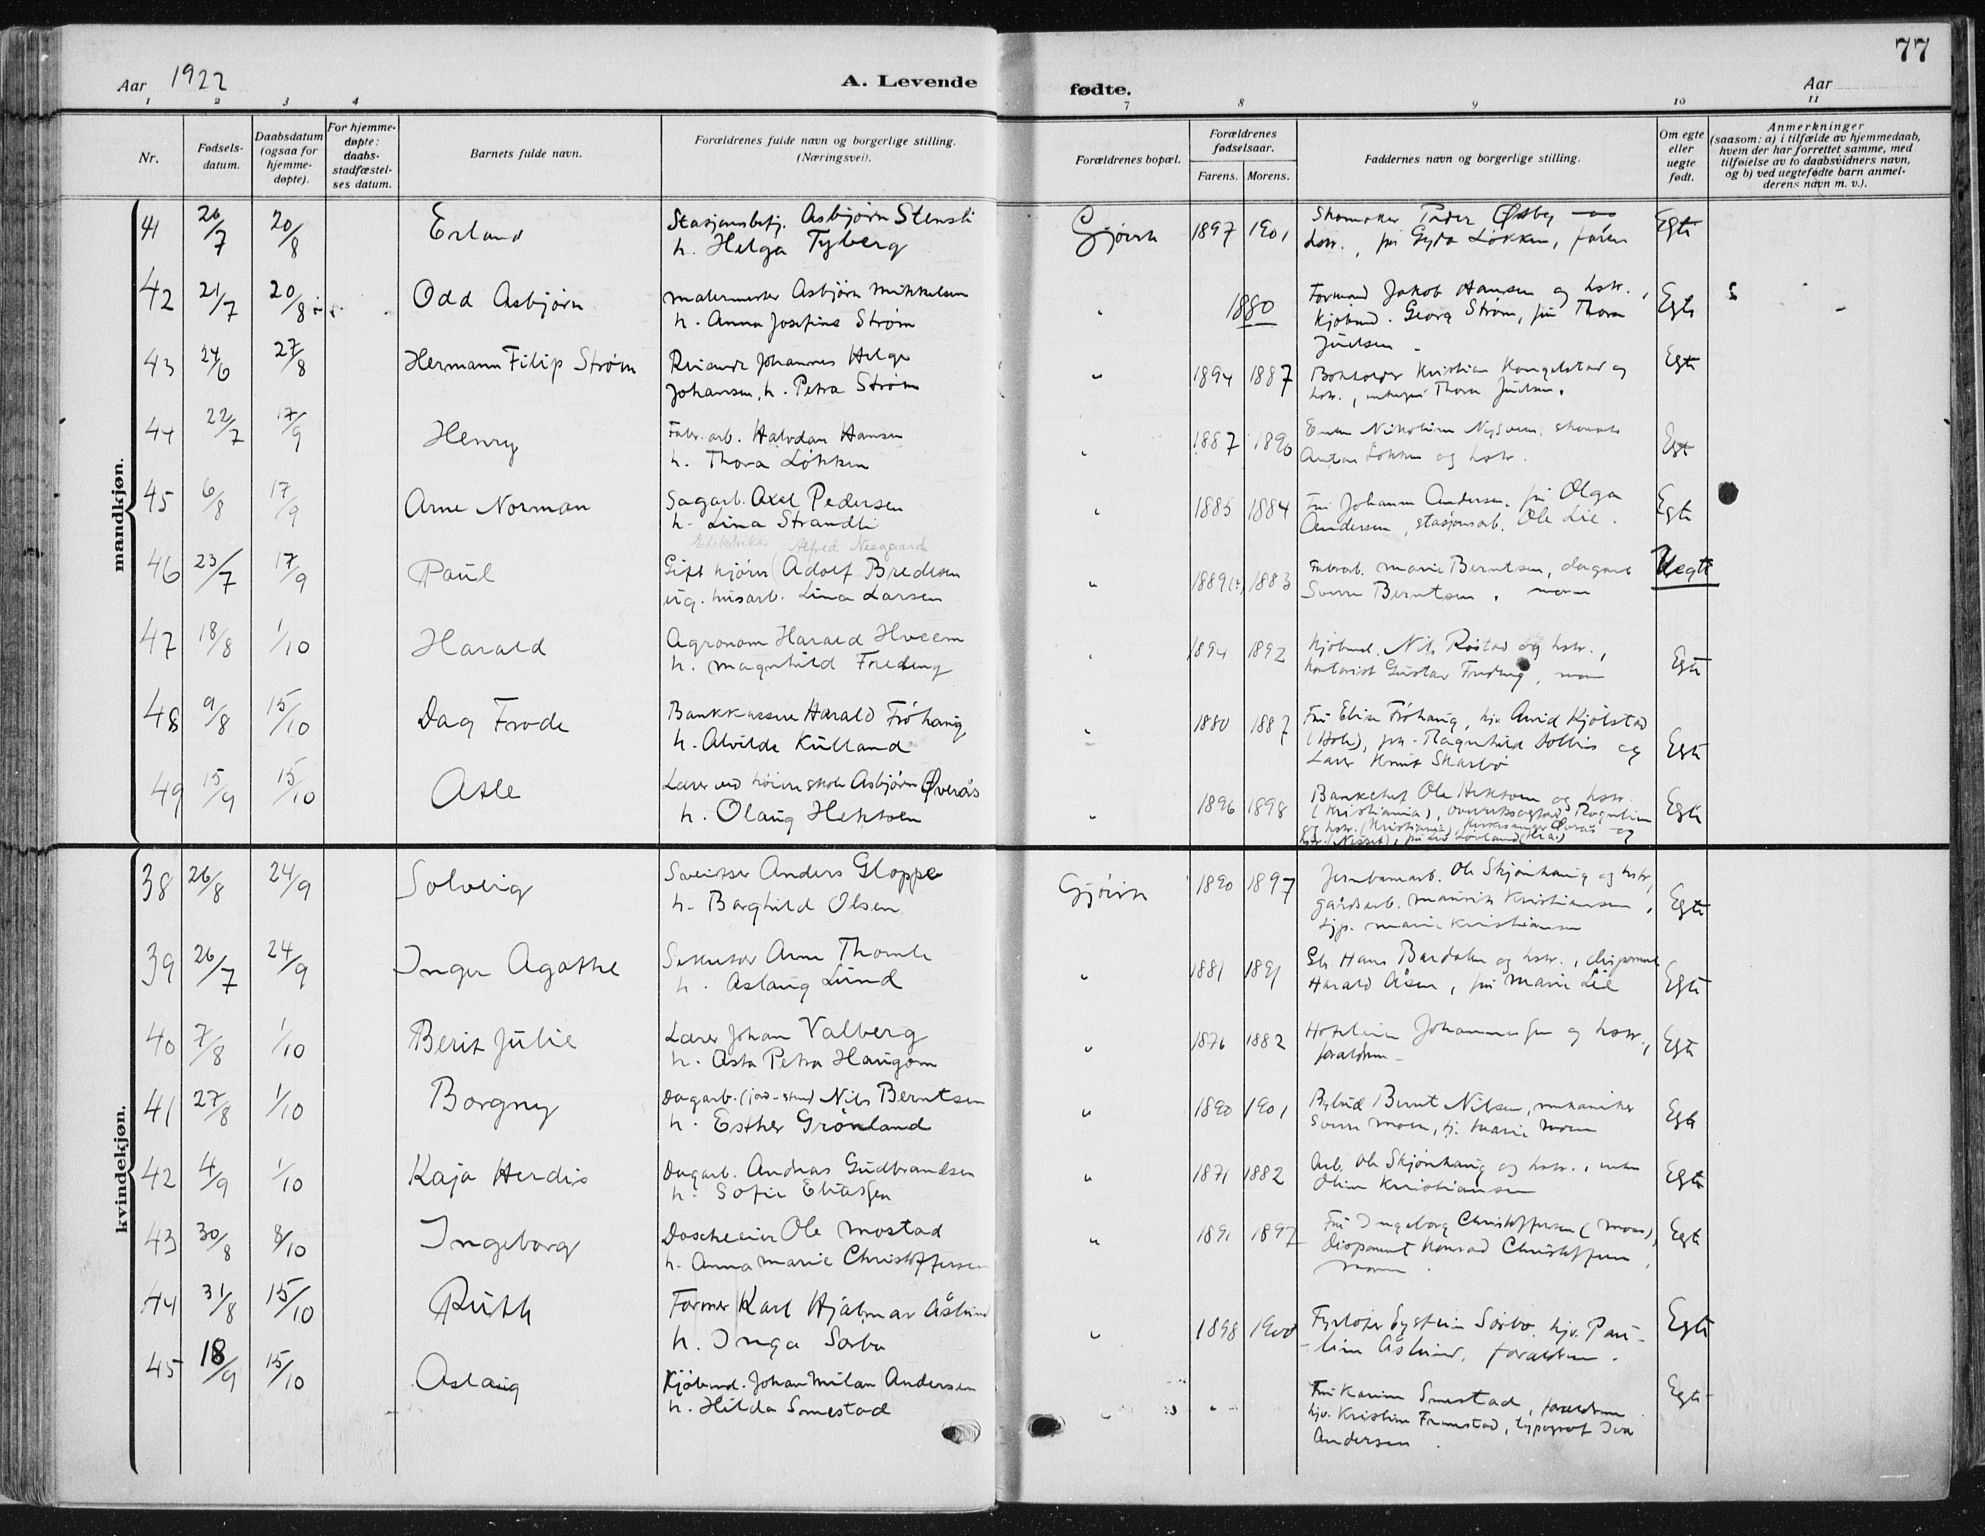 77
Aar 1922
A. Levende
fødte.
Aar
1 2 3 4
7 8 9 10 11
Nr.
Fødsels-
datum.
Daabsdatum
(ogsaa for
hjemme-
døpte).
For hjemme-
døpte:
daabs-
stadfæstel-
ses datum.
Barnets fulde navn.
Forældrenes fulde navn og borgerlige stilling.
(Næringsvei).
Forældrenes bopæl.
Forældrenes
fødselsaar.
Farens. Morens.
Faddernes navn og borgerlige stilling.
Om egte
eller
uegte
født.
Anmerkninger
(saasom: a) i tilfælde av hjemmedaab,
hvem der har forrettet samme, med
tilføielse av to daabsvidners navn,
og b) ved uegtefødte barn anmel-
derens navn m. v.).
mandkjøn.
41 20/8 Erland Asbjørn Stensli Gjøvik 1897 1901 Skomaker Østby
h. Helga Tyberg Løkken, faren Egte
42 21/7 20/8 Odd Asbjørn Malermester Asbjørn Mikkelsen " 1880 Formand Jakob Hansen og hstr., Egte
h. Anna Josefine Strøm Kjøbmd. Georg Strøm, frk Thora
Juelsen
43 24/6 27/8 Hermann Filip Strøm Reisende Johannes Helge " 1894 1887 Bokholder Kristian og Egte
Johansen, h. Petra Strøm hstr., Thora Juelsen.
44 22/7 17/9 Henry Fabr.arb. Halvdan Hansen " 1887 1890 Enke Nikoline Egte
h. Thora Løkken Anton Løkken og hstr.
45 6/8 17/9 Arne Norman Sagarb. Axel Pedersen " 1885 1884 Fru Johanne Andersen, frk Olga Egte
h. Lina Strandli Andersen, stasjonsarb. Ole Lie.
Elektriker Alfred Neegaard
46 23/7 17/9 Paul Gift kjører (Adolf Bredesen " 1889 1883 Fabrarb. Marie Berntsen, dagarb Uegte
ug. husarb. Lina Larsen Sverre Berntsen, moren
47 18/8 1/10 Harald Agronom Harald Hveem " 1894 1892 Kjøbmd. Nils Røstad og hstr., Egte
h. Magnhild Freding kontorist Gustav Freding, moren
48 9/8 15/10 Dag Frode Bankkasserer Harald Frøhaug " 1880 1887 Fru Elise Frøhaug, hjv. Arvid Kjølstad Egte
h. Alvilde Kulland (Hole), frk. Ragnhild og
Lærer Knut Skarbø
49 15/9 15/10 Atle Lærer ved høiere skole Asbjørn Øverås " 1896 1898 Banksjef Ole Hektoen og hstr. Egte
h. Olaug Hektoen (Kristiania),
og hstr. (Kristiania), Kirkesanger Øverås og
hstr. (Nesset),
kvindekjøn.
38 26/8 24/9 Solveig Sveitser Anders Gloppe Gjøvik 1890 1897 Jernbanearb. Ole Skjønhaug og hstr., Egte
h. Borghild Olsen gårdsarb. Maurits Kristiansen,
tjp. Marie Kristiansen
39 26/7 24/9 Inger Agathe Arne Thomle " 1881 1891 Gb. Hans Bardalen og hstr., disponent Egte
h. Aslaug Lund Harald Åsen, frk Marie Lie
40 7/8 1/10 Berit Julie Lærer Johan Valberg " 1876 1882 Johannessen og hstr., Egte
h. Asta Petra Haugom foreldrene
41 27/8 1/10 Borgny Dagarb. Nils Berntsen " 1890 1901 Bybud Bernt Nilsen, mekaniker Egte
h. Esther Grønland Sverre Moen, tj. Marie Moen
42 4/9 1/10 Kaja Herdis Dagarb. Andreas Gudbrandsen " 1871 1882 Arb. Ole Skjønhaug og hstr., enke Egte
h. Sofie Eliassen Oline Kristiansen
43 30/8 8/10 Ingeborg Ole Mostad " 1891 1897 Fru Ingeborg Christoffersen (Moss), Egte
h. Anna Marie Christoffersen Disponent Konrad Christoffersen,
moren.
44 31/8 15/10 Ruth Former Karl Hjalmar Åslund " 1898 1900 Fyrbøter Eystein Sørbo, hjv. Pau- Egte
h. Inga Sørbo line Åslund, foreldrene.
45 18/9 15/10 Aslaug Kjøbmd. Johan Milan Andersen " Fru Karine Smestad, foreldrene Egte
h. Hilda Smestad hjv. Kristine Framstad, typograf
Andersen.